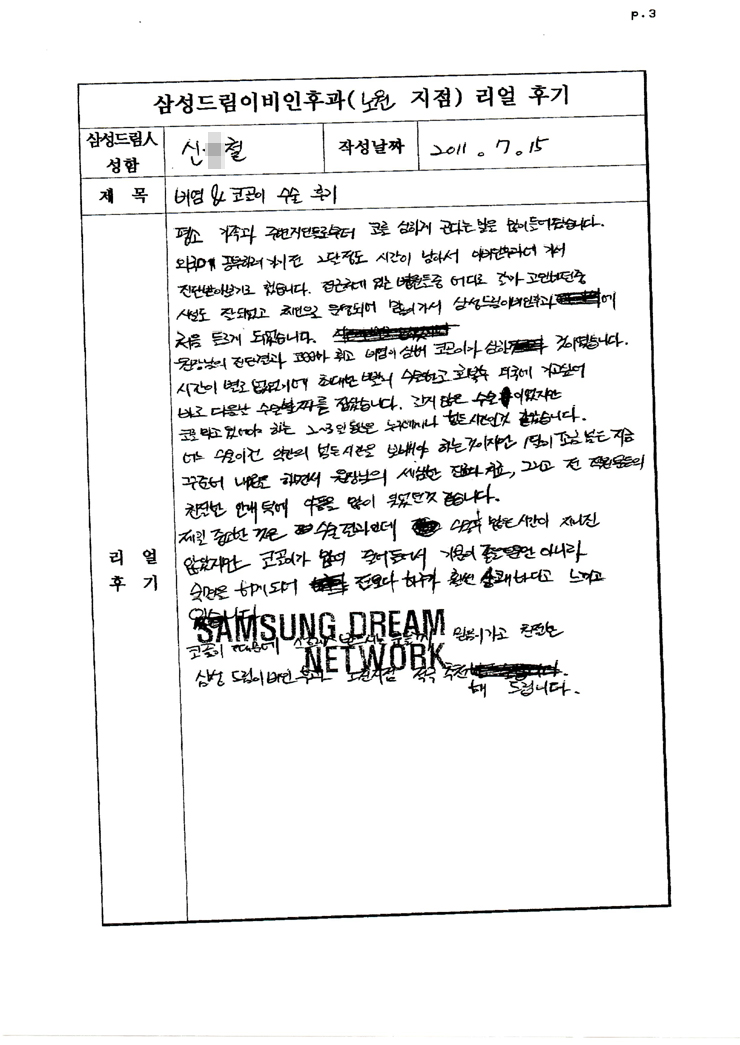 p.3
삼성드림이비인후과(노원 지점) 리얼 후기
삼성드림人 성함
신 철
작성날짜
2011. 7. 15
제 목
비염 & 코골이 수술 후기
리 얼
후 기
평소 가족과 주변지인들로부터 코를 심하게 곤다는 말을 많이 들어왔습니다.
외국에 공부하러 가기전 2달정도 시간이 남아서 이비인후과에 가서
진단받아보기로 했습니다. 접근하게 있는 병원들중 어디로 갈까 고민하던중
시설도 잘되있고 체인으로 운영되어 믿음이가서 삼성드림이비인후과에
처음 들르게 되었습니다.
원장님의 진단결과 휘고 비염이 심해 코골이가 심하 것이었습니다.
시간이 별로 없었기에 최대한 빨리 수술하고 회복후 외국에 가고싶어
바로 다음날 수술날짜를 잡았습니다. 수술이었지만
코막고 있어야 하는 2~3일 동안은 누구에게나 힘든시간인것 같았습니다.
어느 수술이건 약간의 힘든시간을 보내야 하는것이지만 지금
꾸준히 내원을 하면서 원장님의 세심한 진료, 그리고 전 직원분들의
친절한 안내 덕에 도움을 많이 것 같습니다.
제일 중요한 것은 수술결과인데 수술후 많은시간이 지나진
않았지만 코골이가 많이 줄어들어서 기분이 좋을뿐만 아니라
숙면을 하게되어 전보다 하루가 훨씬 상쾌하다고 느끼고
있습니다
SAMSUNG DREAM
NETWORK
코골이 때문에 믿음이가고 친절한
삼성드림이비인후과 노원지점 적극 추천
해 드립니다.